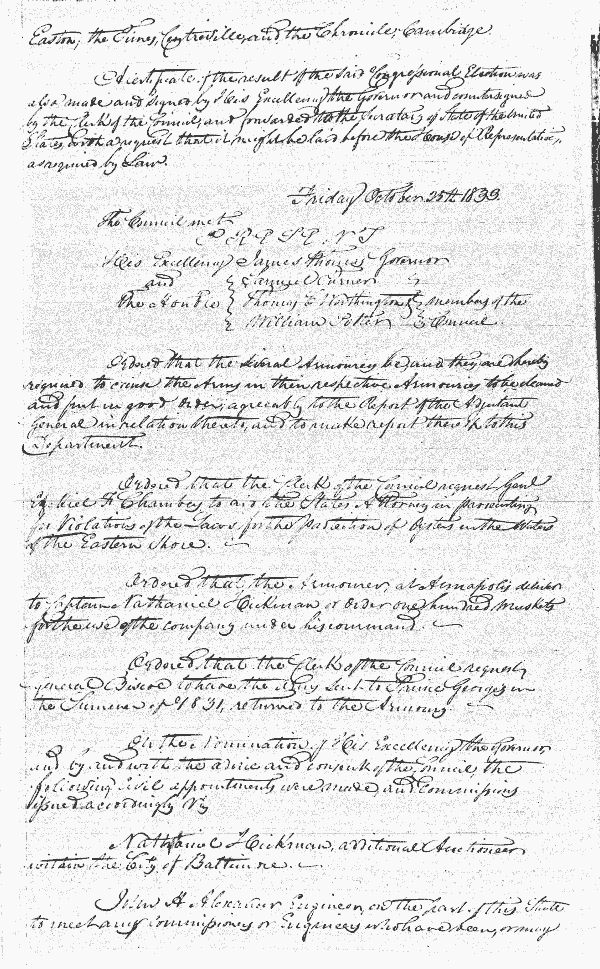 Easton; the Times, Centreville, and the Chronicle, Cambridge.
A certificate of the result of the said Congressional Election was
also made and signed by His Excellency the Governor and countersigned
by the Clerk of the Council, and forwarded to the Secretary of State of the United
States, with a request that it might be laid before the House of Representatives,
as required by Law.
Friday October 25th 1833.
The Council met.
PRESENT
His Excellency James Thomas Governor
and Samuel Turner
the Honble Thomas C Worthington members of the
William Potter Council.
Ordered that the several Armourers be, and they are hereby
required to cause the Arms in their respective Armouries to be cleaned
and put in good order, agreeably to the Report of the Adjutant
General in relation thereto, and to make report thereof to this
Department.
Ordered that the Clerk of the Council request Genl
Ezekiel F Chambers to aid the States Attorney in prosecuting
for Violations of the Laws for the Protection of Oysters in the Waters
of the Eastern Shore.
Ordered that the Armourer, at Annapolis deliver
to Captain Nathaniel Hickman or order one hundred muskets
for the use of the company under his command.
Ordered that the Clerk of the Council request
general Biscoe to have the Arms sent to Prince Georges in
the Summer of 1831, returned to the Armoury.
On the Nomination of His Excellency the Governor
and by and with the advice and consent of the Council, the
following Civil appointments were made, and commissions
issued accordingly Viz
Nathaniel Hickman, additional Auctioneer
within the City of Baltimore.
John H Alexander Engineer, on the part of this State
to meet any Commissioners or Engineers who have been, or may